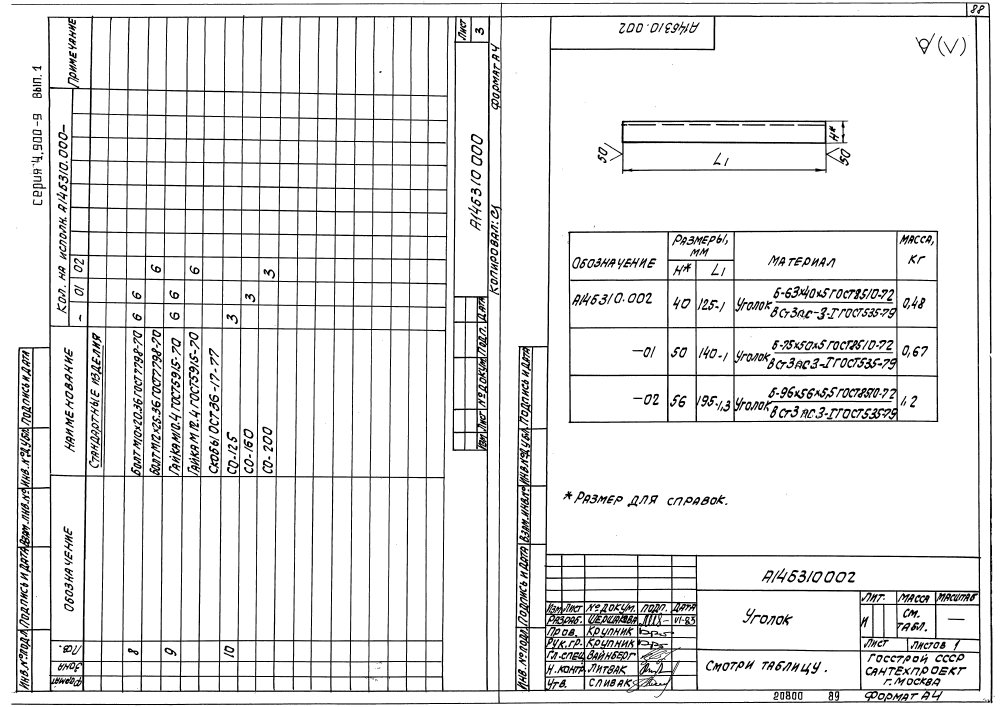 88
Серия 4.900-9 вып. 1
Формат
Зона
Поз.
Обозначение
Наименование
Кол. на исполн. А14631 0.000-
- 01 02
Примечание
Стандартные изделия
8 Болт М10×20.36 ГОСТ 7798-70 6 6
Болт М12×25.36 ГОСТ 7798-70 6
9 Гайка М10.4 ГОСТ 5915-70 6 6
Гайка М12.4 ГОСТ 5915-70 6
Скобы ОСТ 36-17-77
10 СО-125 3
СО-160 3
СО-200 3
Изм. Лист № докум. Подп. Дата
А146310 000
Лист
3
Копировал: Сl
Формат А4
Инв. № подл. Подпись и дата Взам. инв. № Инв. № дубл. Подпись и дата
А146310.002
(√)
50
L1
50
H*
Обозначение
Размеры, мм
H* L1
Материал
Масса, кг
А146310.002 40 125-1 Уголок Б-63×40×5 ГОСТ 8510-72
ВСт3пс-3-I ГОСТ 535-79 0,48
-01 50 140-1 Уголок Б-75×50×5 ГОСТ 8510-72
ВСт3пс3-I ГОСТ 535-79 0,67
-02 56 195-1,3 Уголок Б-96×56×5,5 ГОСТ 8510-72
ВСт3пс3-I ГОСТ 535-79 1,2
* Размер для справок.
Инв. № подл. Подпись и дата Взам. инв. № Инв. № дубл. Подпись и дата
А146310002
Изм. Лист № докум. Подп. Дата
Разраб. Шершакова VI-83
Пров. Крупник
Рук. гр. Крупник
Гл. спец. Вайнберг
Н. контр. Литвак
Утв. Спивак
Уголок
Смотри таблицу.
Лит. Масса Масштаб
И См. табл. —
Лист Листов 1
Госстрой СССР
Сантехпроект
г. Москва
20800 89 Формат А4